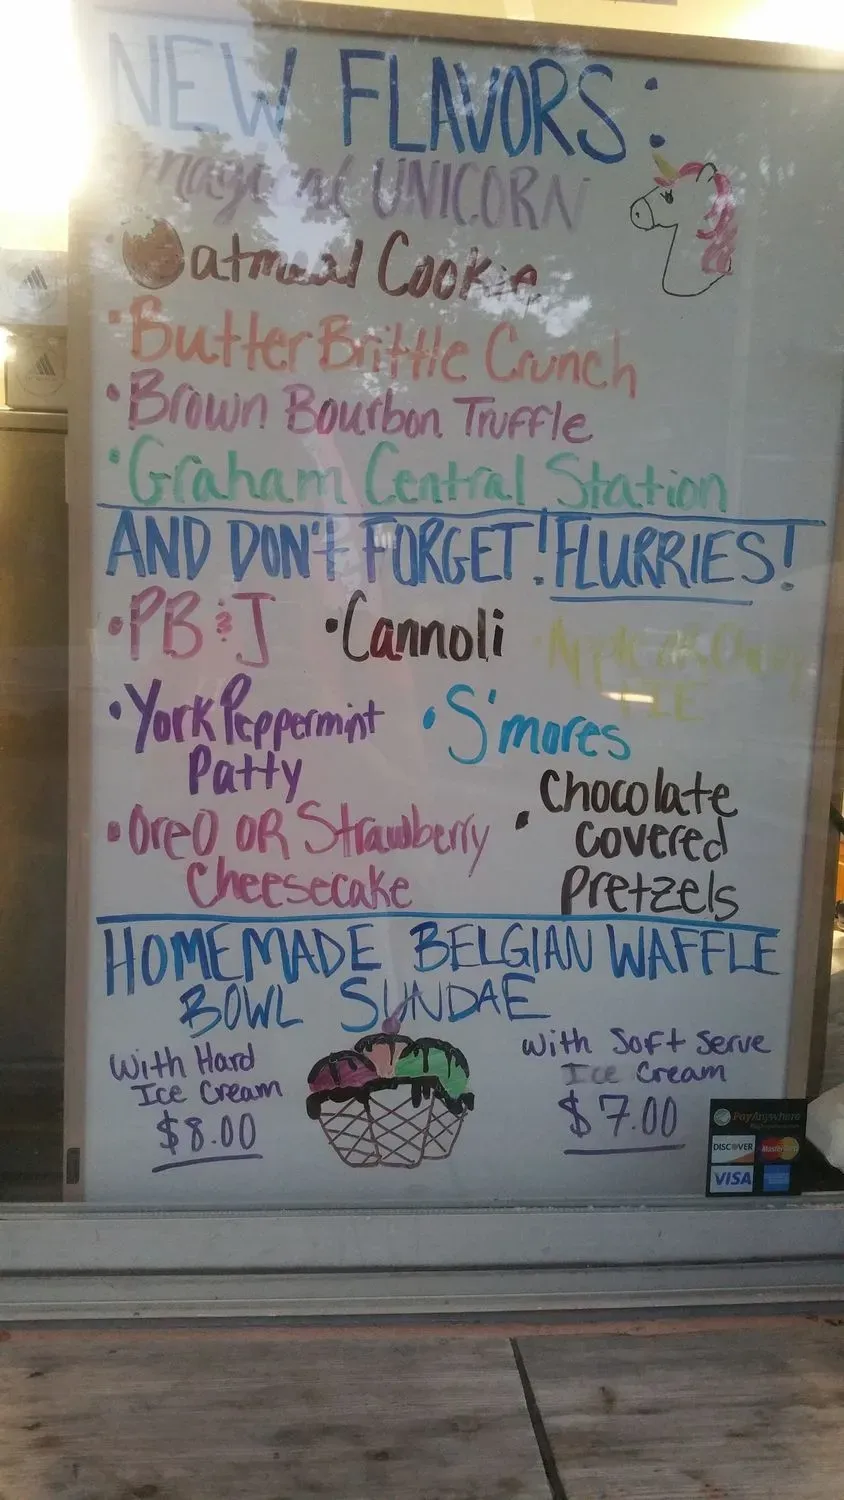 NEW FLAVORS:
• Magical UNICORN
• Oatmeal Cookie
• Butter Brittle Crunch
• Brown Bourbon Truffle
• Graham Central Station
AND DON'T FORGET! FLURRIES!
• PB & J • Cannoli • Apple OR Cherry
PIE
• York Peppermint • S'mores
Patty
Chocolate
• Oreo OR Strawberry • covered
Cheesecake pretzels
HOMEMADE BELGIAN WAFFLE
BOWL SUNDAE
With Hard
Ice Cream
$8.00
With Soft Serve
Ice Cream
$7.00
PayAnywhere
DISCOVER MasterCard
VISA